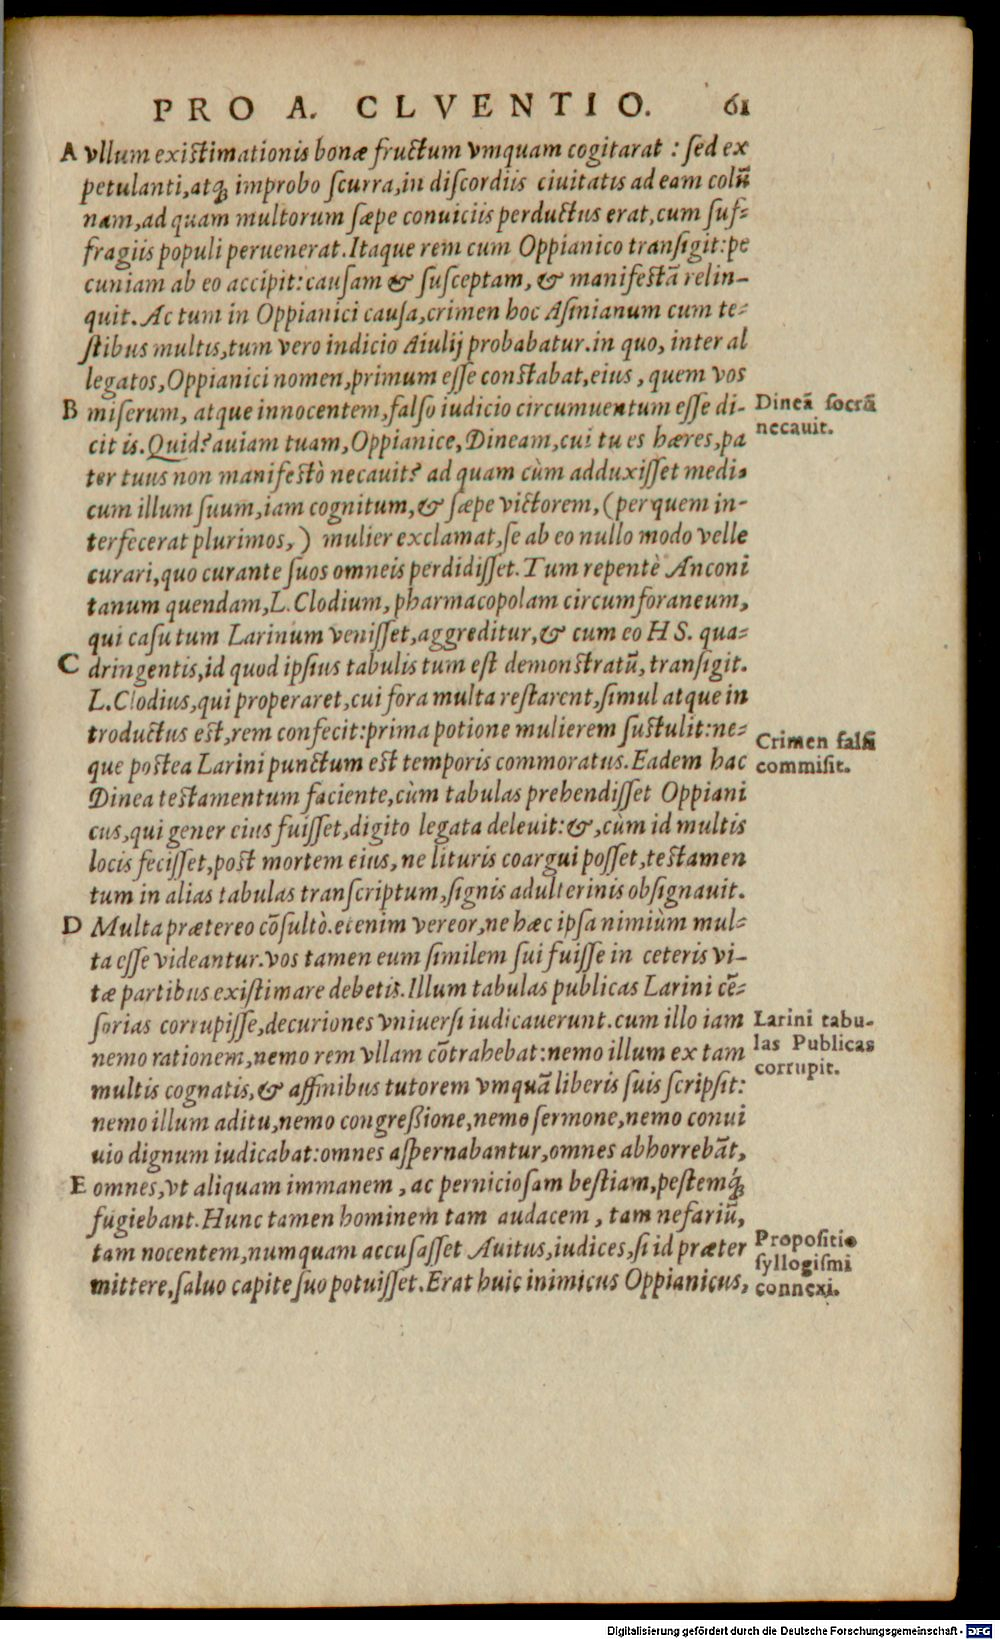 PRO A. CLVENTIO. 61
A vllum existimationis bonæ fructum vmquam cogitarat : sed ex
petulanti, atq; improbo scurra, in discordiis ciuitatis ad eam colū
nam, ad quam multorum sæpe conuiciis perductus erat, cum suf-
fragiis populi peruenerat. Itaque rem cum Oppianico transigit: pe
cuniam ab eo accipit: causam & susceptam, & manifestā relin-
quit. Ac tum in Oppianici causa, crimen hoc Asinianum cum te-
stibus multis, tum vero indicio Aiulij probabatur. in quo, inter al
legatos, Oppianici nomen, primum esse constabat, eius, quem vos
B miserum, atque innocentem, falso iudicio circumuentum esse di-
cit is. Quid? auiam tuam, Oppianice, Dineam, cui tu es hæres, pa
ter tuus non manifestò necauit? ad quam cùm adduxisset medi-
cum illum suum, iam cognitum, & sæpe victorem, (per quem in-
terfecerat plurimos,) mulier exclamat, se ab eo nullo modo velle
curari, quo curante suos omneis perdidisset. Tum repentè Anconi
tanum quendam, L. Clodium, pharmacopolam circumforaneum,
qui casu tum Larinum venisset, aggreditur, & cum eo HS. qua-
C dringentis, id quod ipsius tabulis tum est demonstratū, transigit.
L. Clodius, qui properaret, cui fora multa restarent, simul atque in
troductus est, rem confecit: prima potione mulierem sustulit: ne-
que postea Larini punctum est temporis commoratus. Eadem hac
Dinea testamentum faciente, cùm tabulas prehendisset Oppiani
cus, qui gener eius fuisset, digito legata deleuit: &, cùm id multis
locis fecisset, post mortem eius, ne lituris coargui posset, testamen
tum in alias tabulas transcriptum, signis adulterinis obsignauit.
D Multa prætereo cōsultò. etenim vereor, ne hæc ipsa nimiùm mul-
ta esse videantur. vos tamen eum similem sui fuisse in ceteris vi-
tæ partibus existimare debetis. Illum tabulas publicas Larini cē-
sorias corrupisse, decuriones vniuersi iudicauerunt. cum illo iam
nemo rationem, nemo rem vllam cōtrahebat: nemo illum ex tam
multis cognatis, & affinibus tutorem vmquā liberis suis scripsit:
nemo illum aditu, nemo congreßione, nemo sermone, nemo conui
uio dignum iudicabat: omnes aspernabantur, omnes abhorrebāt,
E omnes, vt aliquam immanem, ac perniciosam bestiam, pestemq́;
fugiebant. Hunc tamen hominem tam audacem, tam nefariū,
tam nocentem, numquam accusasset Auitus, iudices, si id præter
mittere, saluo capite suo potuisset. Erat huic inimicus Oppianicus,
Dineā socrū
necauit.
Crimen falsi
commisit.
Larini tabu-
las Publicas
corrupit.
Propositio
syllogismi
connexi.
Digitalisierung gefördert durch die Deutsche Forschungsgemeinschaft - DFG